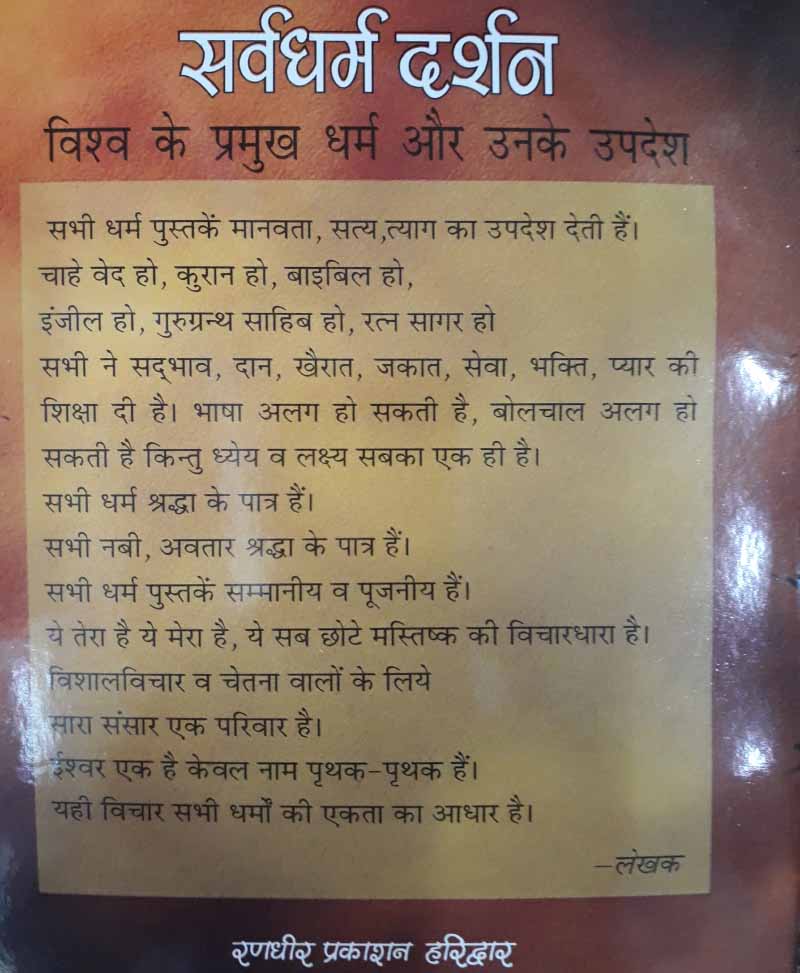 सर्वधर्म दर्शन
विश्व के प्रमुख धर्म और उनके उपदेश
सभी धर्म पुस्तकें मानवता, सत्य,त्याग का उपदेश देती हैं।
चाहे वेद हो, कुरान हो, बाइबिल हो,
इंजील हो, गुरुग्रन्थ साहिब हो, रत्न सागर हो
सभी ने सद्भाव, दान, खैरात, जकात, सेवा, भक्ति, प्यार की
शिक्षा दी है। भाषा अलग हो सकती है, बोलचाल अलग हो
सकती है किन्तु ध्येय व लक्ष्य सबका एक ही है।
सभी धर्म श्रद्धा के पात्र हैं।
सभी नबी, अवतार श्रद्धा के पात्र हैं।
सभी धर्म पुस्तकें सम्मानीय व पूजनीय हैं।
ये तेरा है ये मेरा है, ये सब छोटे मस्तिष्क की विचारधारा है।
विशालविचार व चेतना वालों के लिये
सारा संसार एक परिवार है।
ईश्वर एक है केवल नाम पृथक-पृथक हैं।
यही विचार सभी धर्मों की एकता का आधार है।
-लेखक
रणधीर प्रकाशन हरिद्वार